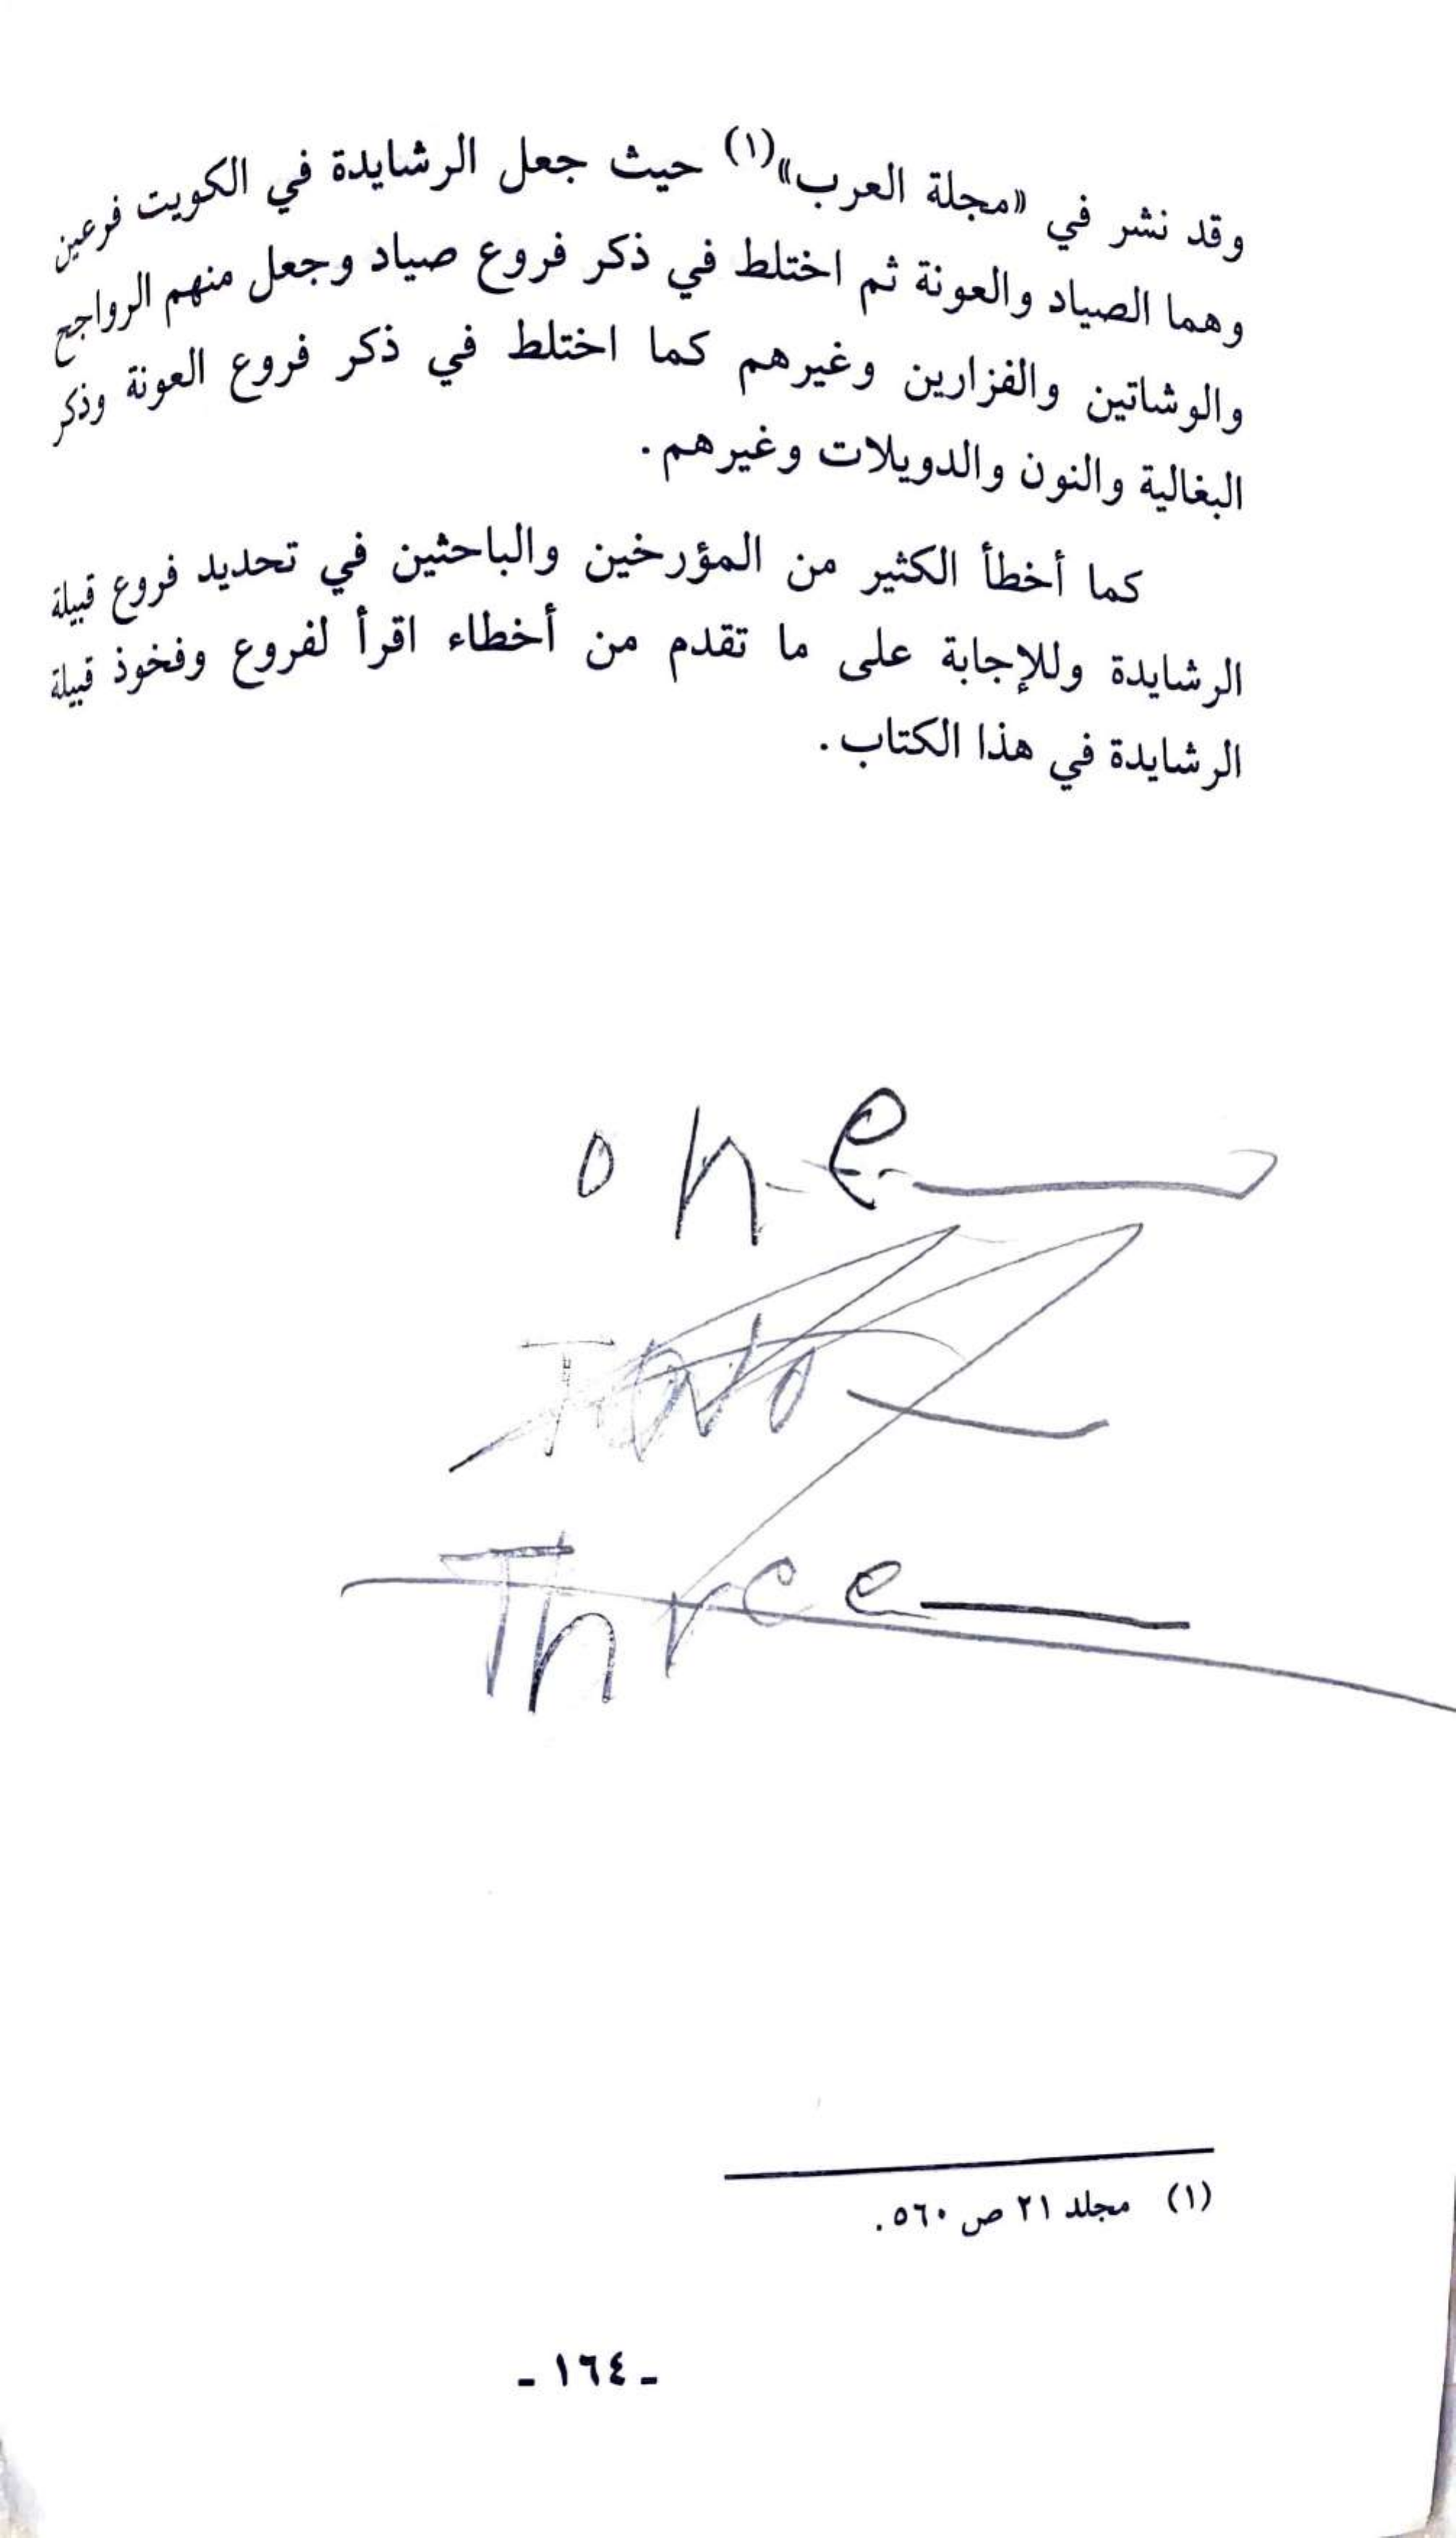 وقد نشر في «مجلة العرب»(١) حيث جعل الرشايدة في الكويت فرعين
وهما الصياد والعونة ثم اختلط في ذكر فروع صياد وجعل منهم الرواجح
والوشاتين والفزارين وغيرهم كما اختلط في ذكر فروع العونة وذكر
البغالية والنون والدويلات وغيرهم.
كما أخطأ الكثير من المؤرخين والباحثين في تحديد فروع قبيلة
الرشايدة وللإجابة على ما تقدم من أخطاء اقرأ لفروع وفخوذ قبيلة
الرشايدة في هذا الكتاب.
one
Three
(١) مجلد ٢١ ص ٥٦٠.
- ١٦٤ -